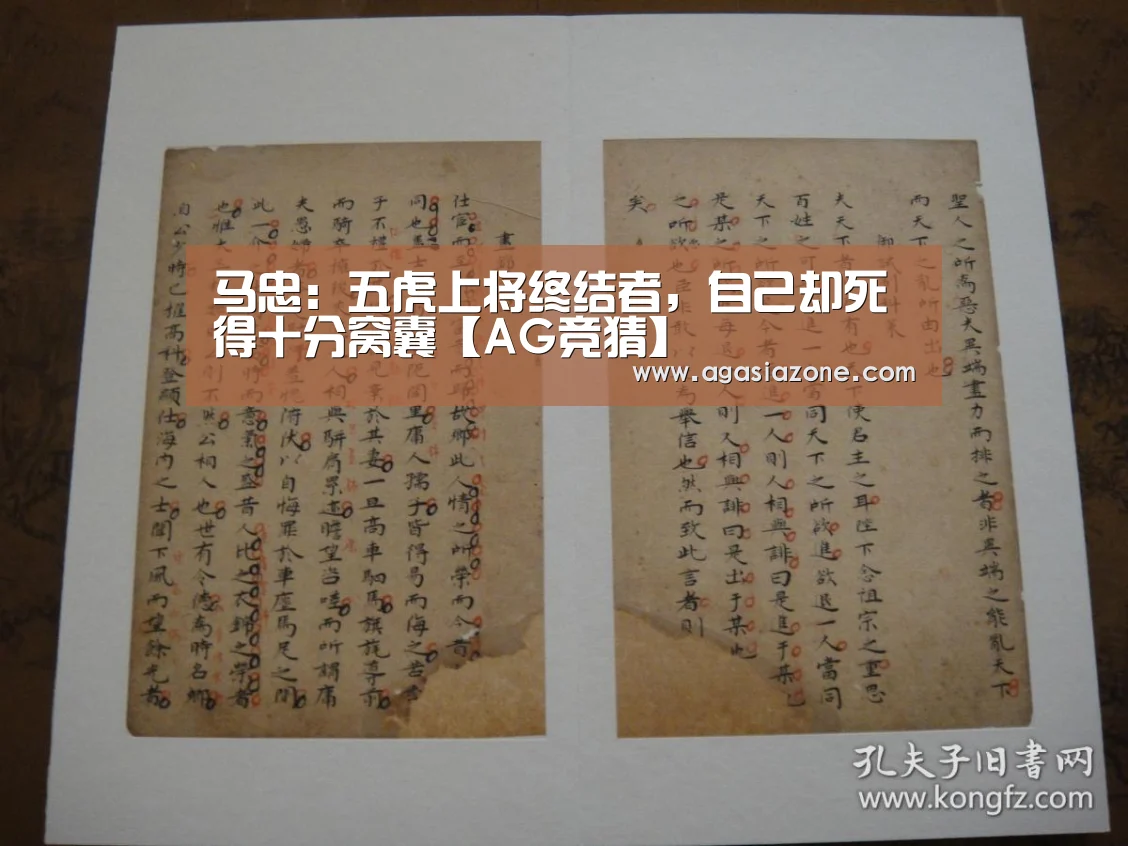 马忠：五虎上将终结者，自己却死
得十分窝囊【AG竞猜】
www.agasiazone.com
聖人之所為惡夫異端盡力而排之者非異端之能亂天下
而天下之亂所由出也
御試 策
夫天下 有也 下使君主之耳陛下念祖宗之重思
百姓之可 進一 當同天下之所欲進欲退一人當同
天下之所 今者 進一人則人相與誹曰是進于某也
是某之 每退 人則又相與誹曰是出于某也
之所欲也臣非 以 為舉信也然而致此言者則
矣
晝
仕宦而至 富 而歸故鄉此人情之所榮而今昔
同也蓋士 困阨閭里庸人孺子皆得易而侮之若季
子不禮 見棄於其妻一旦高車駟馬旗旄導前
而騎卒擁後 人相與駢肩累迹瞻望咨嗟而所謂庸
夫愚婦 羞愧俯伏以自悔罪於車塵馬足之間
此一介 時而意氣之盛昔人比之衣錦之榮者
也惟大 則不然公相人也世有令德為時名卿
自公少時已擢高科登顯仕海內之士聞下風而望餘光者
孔夫子旧书网
www.kongfz.com